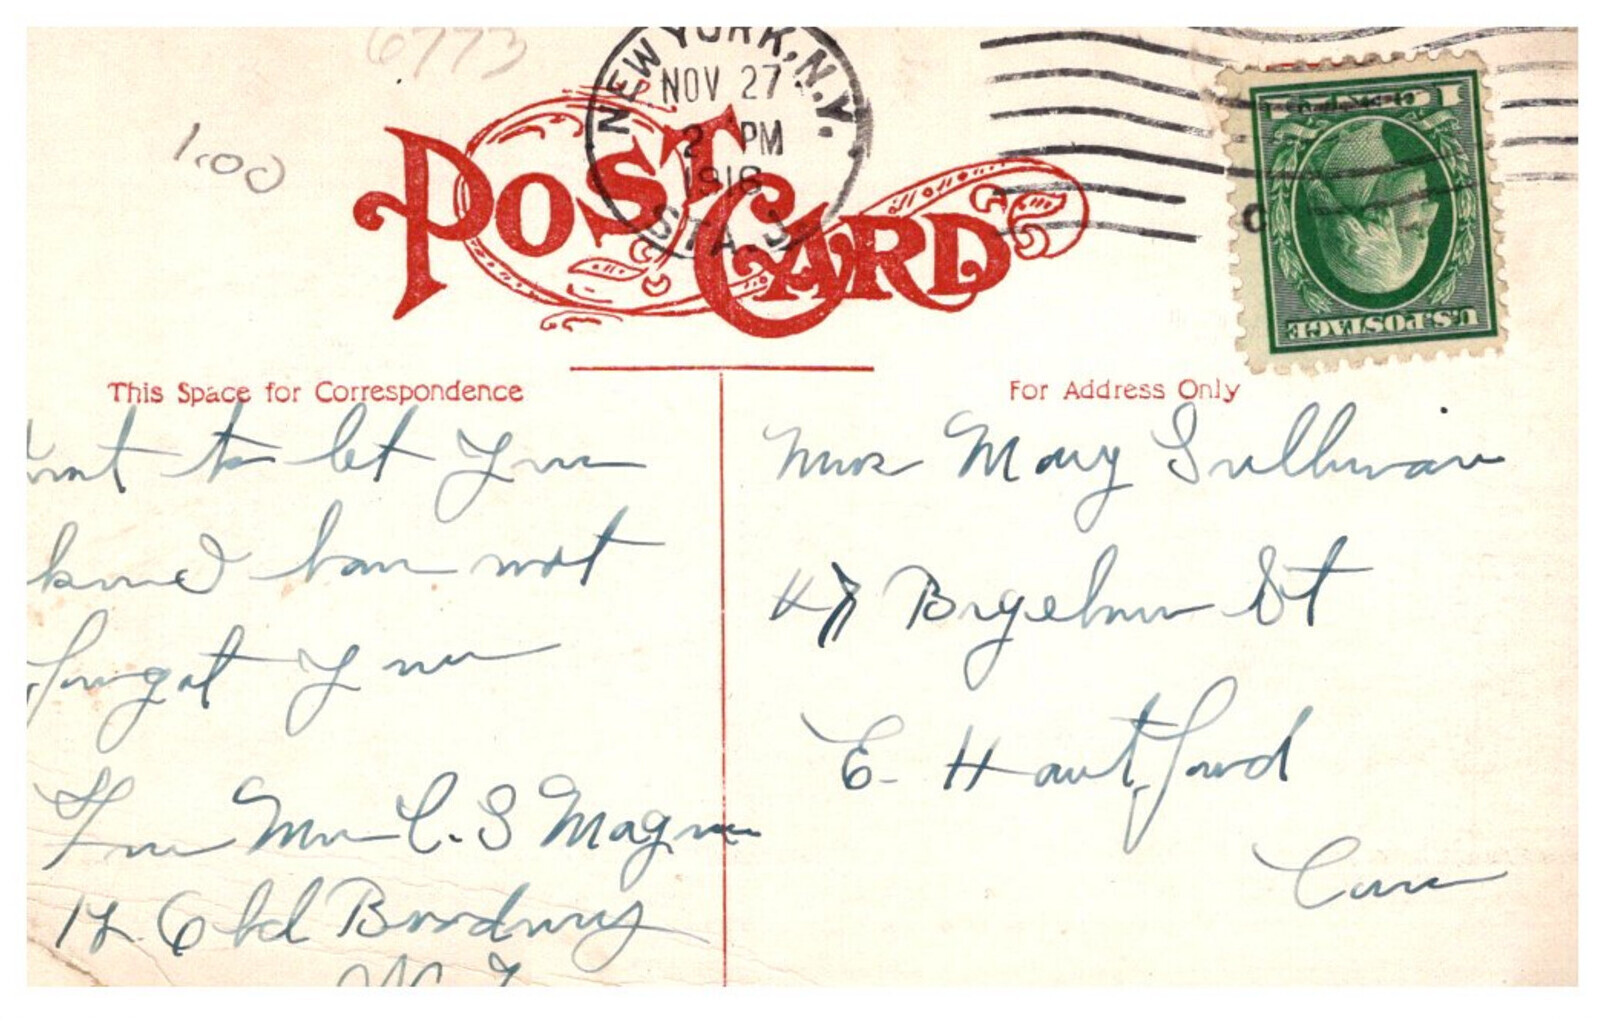 6773
1.00
NEW YORK, N.Y.
NOV 27
2 PM
1916
STA. J
POST CARD
U.S. POSTAGE
This Space for Correspondence
For Address Only
to let you
know I have not
forgot you
From Mrs C. S Magn
17 Old Broadway
N. Y
Mrs Mary Sullivan
47 Bigelow St
E. Hartford
Conn